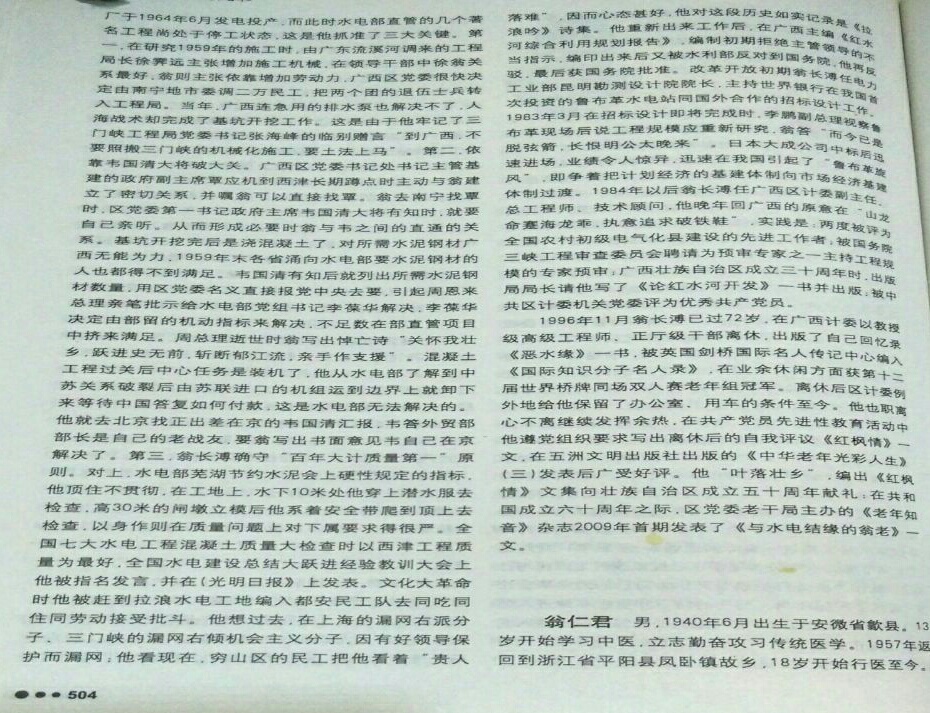 厂于1964年6月发电投产，而此时水电部直管的几个著
名工程尚处于停工状态，这是他抓准了三大关键。第
一，在研究1959年的施工时，由广东流溪河调来的工程
局长徐霁远主张增加施工机械，在领导干部中徐翁关
系最好，翁则主张依靠增加劳动力，广西区党委很快决
定由南宁地市委调二万民工，把两个团的退伍士兵转
入工程局。当年，广西连急用的排水泵也解决不了，人
海战术却完成了基坑开挖工作。这是由于他牢记了三
门峡工程局党委书记张海峰的临别赠言“到广西，不
要照搬三门峡的机械化施工，要土法上马”。第二，依
靠韦国清大将破大关。广西区党委书记处书记主管基
建的政府副主席覃应机到西津长期蹲点时主动与翁建
立了密切关系，并嘱翁可以直接找覃。翁去南宁找覃
时，区党委第一书记政府主席韦国清大将有知时，就要
自己亲听。从而形成必要时翁与韦之间的直通的关
系。基坑开挖完后是浇混凝土了，对所需水泥钢材广
西无能为力，1959年末各省涌向水电部要水泥钢材的
人也都得不到满足。韦国清有知后就列出所需水泥钢
材数量，用区党委名义直接报党中央去要，引起周恩来
总理亲笔批示给水电部党组书记李葆华解决，李葆华
决定由部留的机动指标来解决，不足数在部直管项目
中挤来满足。周总理逝世时翁写出悼亡诗“关怀我壮
乡，跃进史无前，斩断郁江流，亲手作支援”。混凝土
工程过关后中心任务是装机了，他从水电部了解到中
苏关系破裂后由苏联进口的机组运到边界上就卸下
来等待中国答复如何付款，这是水电部无法解决的。
他就去北京找正出差在京的韦国清汇报，韦答外贸部
部长是自己的老战友，要翁写出书面意见韦自己在京
解决了。第三，翁长溥确守“百年大计质量第一”原
则。对上，水电部芜湖节约水泥会上硬性规定的指标，
他顶住不贯彻，在工地上，水下10米处他穿上潜水服去
检查，高30米的闸墩立模后他系着安全带爬到顶上去
检查，以身作则在质量问题上对下属要求得很严。全
国七大水电工程混凝土质量大检查时以西津工程质
量为最好，全国水电建设总结大跃进经验教训大会上
他被指名发言，并在《光明日报》上发表。文化大革命
时他被赶到拉浪水电工地编入都安民工队去同吃同
住同劳动接受批斗。他想过去，在上海的漏网右派分
子、三门峡的漏网右倾机会主义分子，因有好领导保
护而漏网；他看现在，穷山区的民工把他看着“贵人
落难”，因而心态甚好，他对这段历史如实记录是《拉
浪吟》诗集。他重新出来工作后，在广西主编《红水
河综合利用规划报告》，编制初期拒绝主管领导的不
当指示，编印出来后又被水利部反对到国务院，他再反
驳，最后获国务院批准。改革开放初期翁长溥任电力
工业部昆明勘测设计院院长，主持世界银行在我国首
次投资的鲁布革水电站同国外合作的招标设计工作。
1983年3月在招标设计即将完成时，李鹏副总理视察鲁
布革现场后说工程规模应重新研究，翁答“而今已是
脱弦箭，长恨明公太晚来”。日本大成公司中标后迅
速进场，业绩令人惊异，迅速在我国引起了“鲁布革旋
风”，即争着把计划经济的基建体制向市场经济基建
体制过渡。1984年以后翁长溥任广西区计委副主任、
总工程师、技术顾问，他晚年回广西的原意在“山龙
命蹇海龙乖，执意追求破铁鞋”，实践是：两度被评为
全国农村初级电气化县建设的先进工作者；被国务院
三峡工程审查委员会聘请为预审专家之一主持工程规
模的专家预审；广西壮族自治区成立三十周年时，出版
局局长请他写了《论红水河开发》一书并出版；被中
共区计委机关党委评为优秀共产党员。
1996年11月翁长溥已过72岁，在广西计委以教授
级高级工程师、正厅级干部离休，出版了自己回忆录
《恶水缘》一书，被英国剑桥国际名人传记中心编入
《国际知识分子名人录》，在业余休闲方面获第十二
届世界桥牌同场双人赛老年组冠军。离休后区计委例
外地给他保留了办公室、用车的条件至今。他也职离
心不离继续发挥余热，在共产党员先进性教育活动中
他遵党组织要求写出离休后的自我评议《红枫情》一
文，在五洲文明出版社出版的《中华老年光彩人生》
（三）发表后广受好评。他“叶落壮乡”，编出《红枫
情》文集向壮族自治区成立五十周年献礼；在共和
国成立六十周年之际，区党委老干局主办的《老年知
音》杂志2009年首期发表了《与水电结缘的翁老》一
文。
翁仁君 男，1940年6月出生于安微省歙县。13
岁开始学习中医，立志勤奋攻习传统医学。1957年返
回到浙江省平阳县凤卧镇故乡，18岁开始行医至今。
504